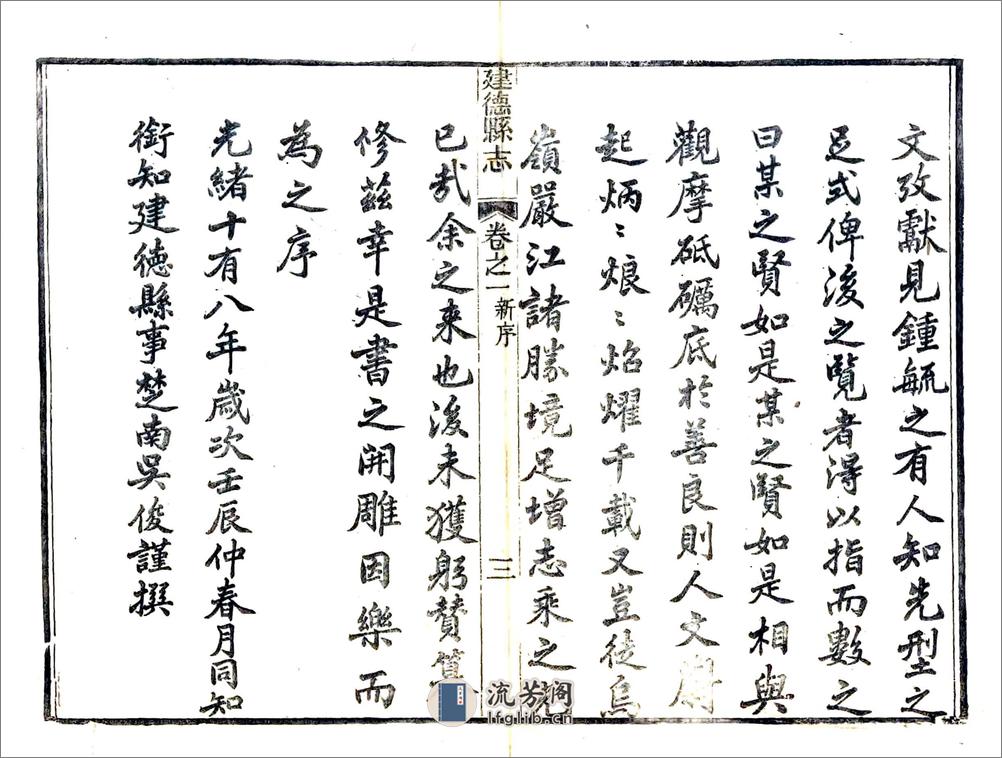 文攷獻見鍾毓之有人知先型之
足式俾後之覽者得以指而數之
曰某之賢如是某之賢如是相與
觀摩砥礪底於善良則人文蔚
起炳〻烺〻焰燿千載又豈徒烏
嶺嚴江諸勝境足增志乘之光
已哉余之来也後未獲躬贊纂
修茲幸是書之開雕因樂而
為之序
光緒十有八年歲次壬辰仲春月同知
銜知建德縣事楚南吳俊謹撰
建德縣志 卷之一 新序 三
流芳閣
lfglib.cn